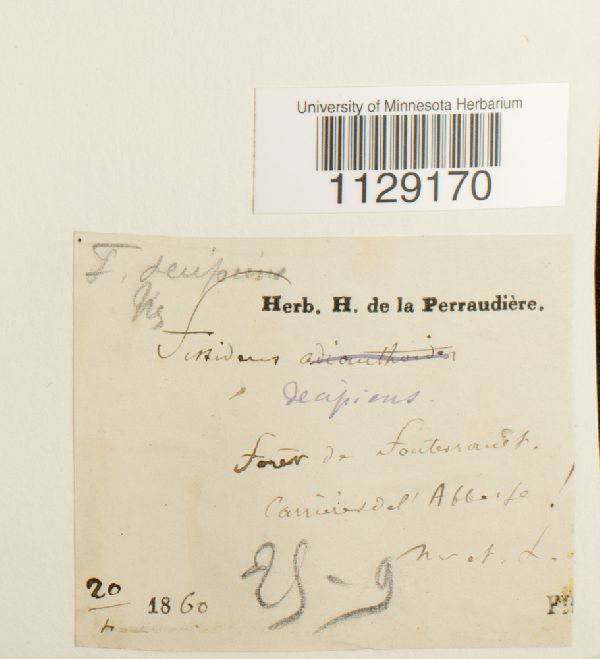 University of Minnesota Herbarium
1129170
F. decipiens
Herb. H. de la Perraudière.
Fissidens adianthoides
decipiens.
Forêt de Fontevrault.
Carrières de l'Abbesse!
25-9
20
1860